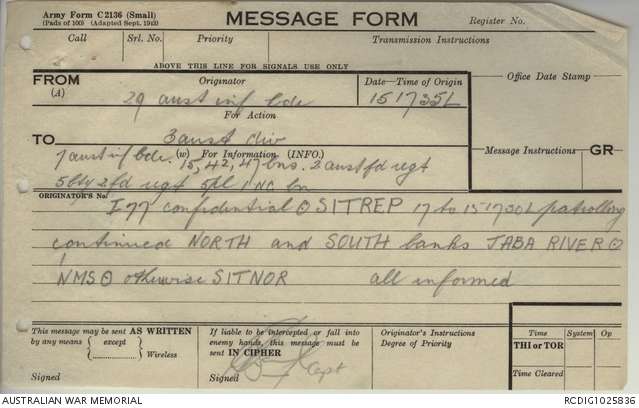 Army Form C2136 (Small)
(Pads of 100) (Adapted Sept. 1942)
MESSAGE FORM
Register No.
Call Srl. No. Priority Transmission Instructions
ABOVE THIS LINE FOR SIGNALS USE ONLY
FROM
(A)
Originator
Date—Time of Origin
Office Date Stamp
29 aust inf bde
151735L
For Action
TO
3 aust div
(w) For Information (INFO.)
Message Instructions GR
7 aust inf bde. 15, 42, 47 bns. 2 aust fd regt
5 bty 2 fd regt 5 pl 1 NG bn
ORIGINATOR'S No.
I77 confidential ⊙ SITREP 17 to 151730L patrolling
continued NORTH and SOUTH banks JABA RIVER ⊙
NMS ⊙ otherwise SITNOR all informed
This message may be sent AS WRITTEN
by any means
except
Wireless
Signed
If liable to be intercepted or fall into
enemy hands, this message must be
sent IN CIPHER
Signed Capt
Originator's Instructions
Degree of Priority
Time System Op
THI or TOR
Time Cleared
AUSTRALIAN WAR MEMORIAL
RCDIG1025836